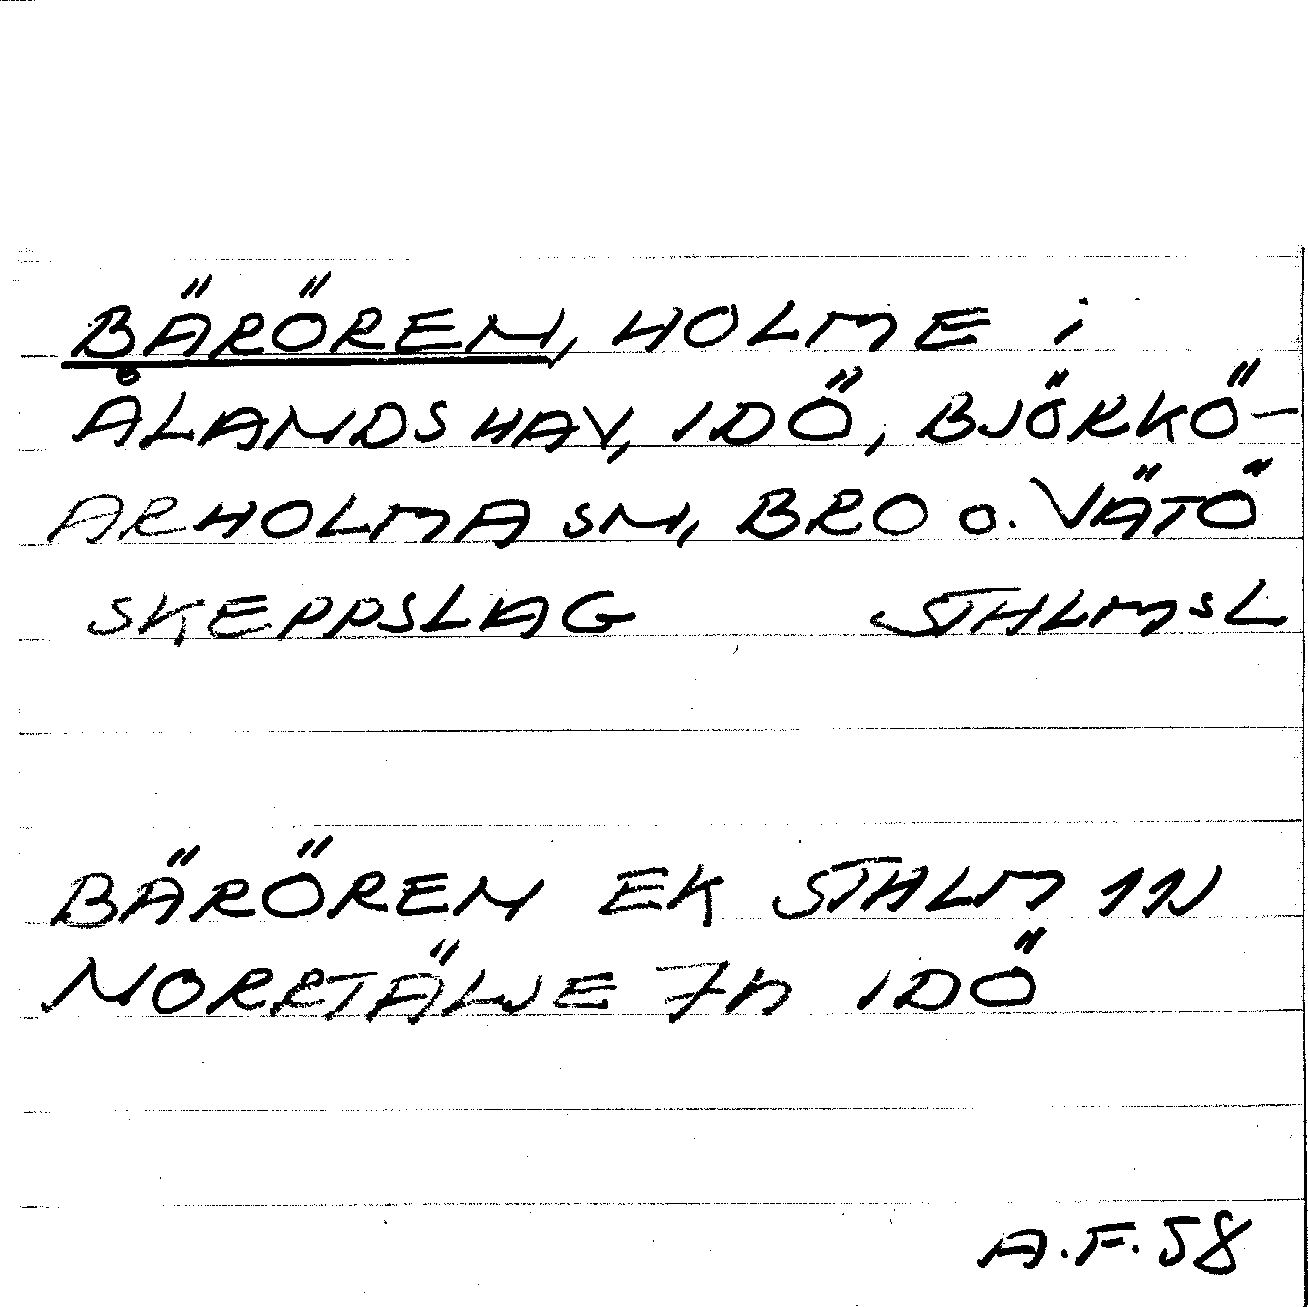 BÄRÖREN, HOLME i
ÅLANDS HAV, IDÖ, BJÖRKÖ-
ARHOLMA SN, BRO o. VÄTÖ
SKEPPSLAG STHLMSL
BÄRÖREN EK STHLM 11N
NORRTÄLJE 7h IDÖ
A.F. 58